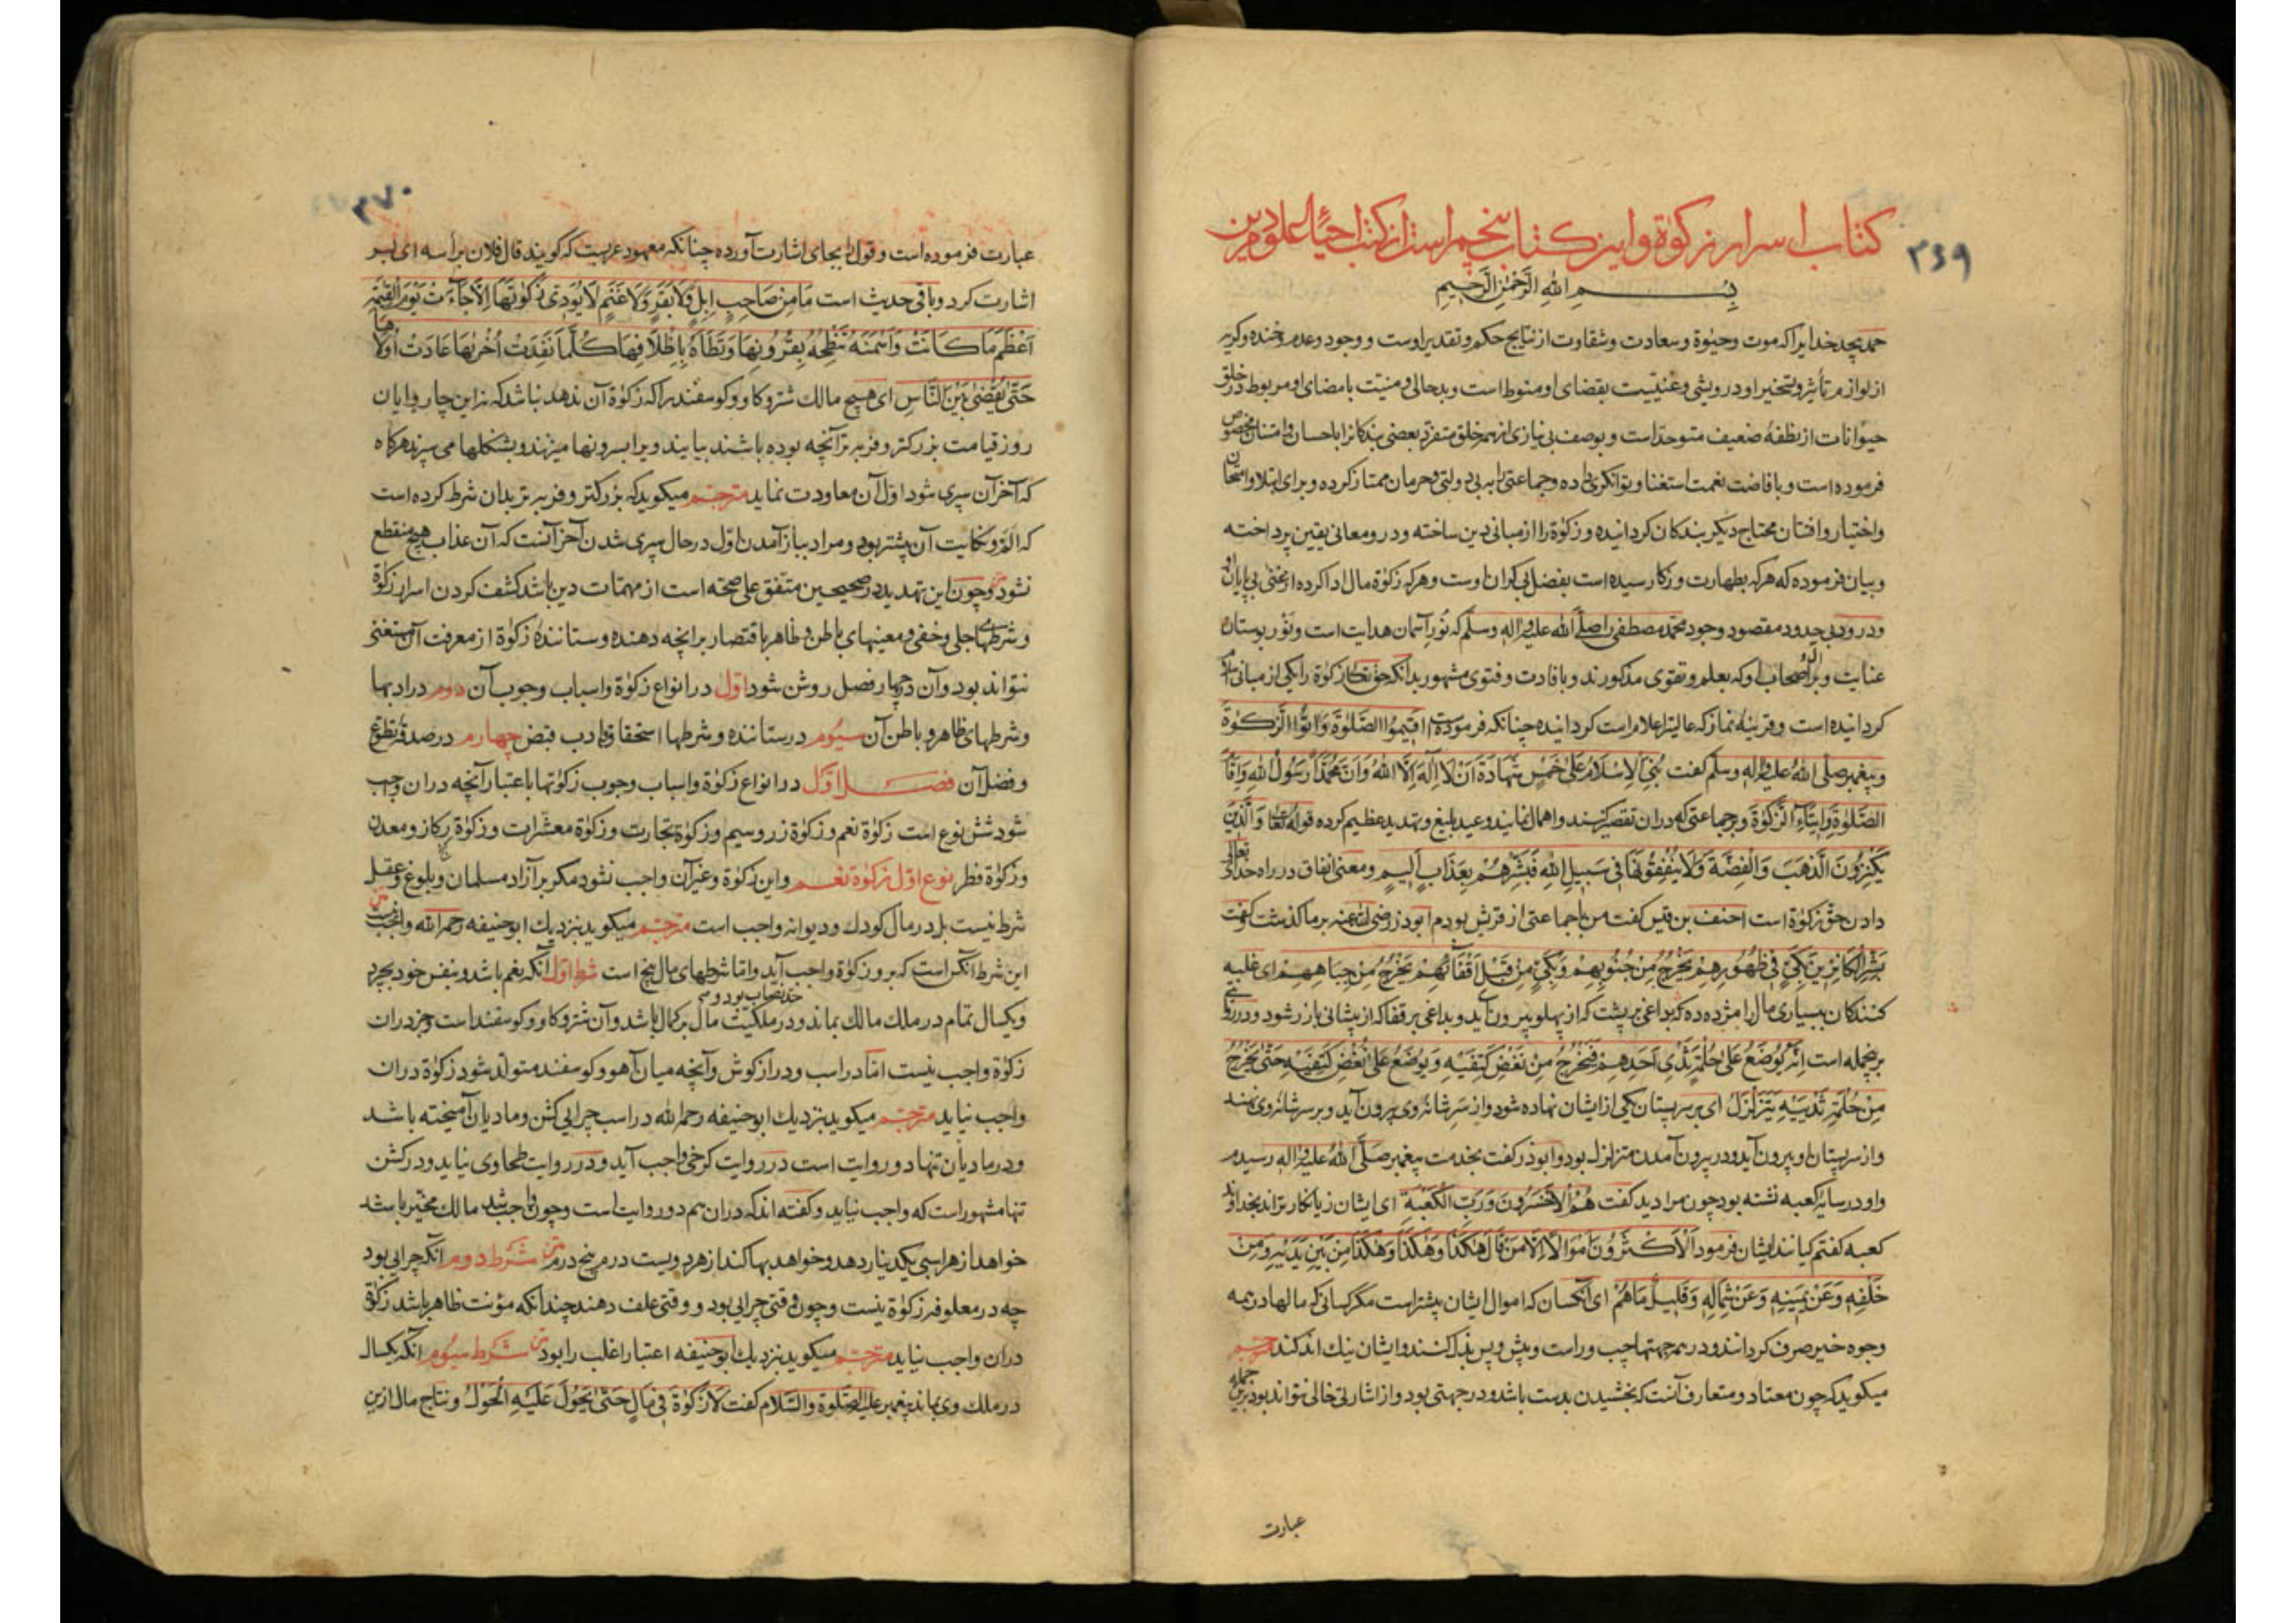 ۳۶۹
کتاب اسرار زکوة واین کتاب پنجم است از کتب احیاء علوم دین
بِسْمِ اللهِ الرَّحْمٰنِ الرَّحِیْمِ
حمد بیحد خدایرا که موت و حیوة و سعادت و شقاوت از نتایج حکم و تقدیر اوست و وجود و عدم و خنده و کریه
از لوازم تأثیر و تسخیر او درویشی و غنیت بقضای او منوط است و بدحالی و منیت بامضای او مربوط در خلق
حیوانات از نطفهٔ ضعیف متوحد است و بوصف بی نیازی از همه خلق متفرد بعضی بندکانرا باحسان و امتنان مخصوص
فرموده است و بافاضت نعمت استغنا و توانکری داده و جماعتی را به بی دولتی و حرمان ممتاز کرده و برای ابتلا و امتحان
و اختیار و افتان محتاج دیکر بندکان کردانیده و زکوة را از مبانی دین ساخته و در و معانی یقین پرداخته
و بیان فرموده که هرکه بطهارت و زکا رسیده است بفضل بی کران اوست و هرکه زکوة مال ادا کرده از غنی بی پایان او
و درود بی حد ود مقصود وجود محمد مصطفی را صلی الله علیه واله وسلم که نور آسمان هدایت است و نور بوستان
عنایت و بر آل و اصحاب او که بعلم و تقوی مذکورند و بافادت و فتوی مشهور بدانکه حق تعالی زکوة را یکی از مبانی اسلام
کردانیده است و قرینهٔ نماز که عالیتر اعلام است کردانیده چنانکه فرموده اَقِیمُوا الصَّلٰوةَ وَاٰتُوا الزَّکٰوةَ
و پیغمبر صلی الله علیه واله وسلم کفت بُنِیَ الْاِسْلَامُ عَلیٰ خَمْسٍ شَهَادَةِ اَنْ لَا اِلٰهَ اِلَّا اللهُ وَاَنَّ مُحَمَّدًا رَسُولُ اللهِ وَاِقَامِ
الصَّلٰوةِ وَاِیتَاءِ الزَّکٰوةِ و بر جماعتی که در ان تقصیر کنند و اهمال نمایند وعید بلیغ و تهدید عظیم کرده قوله تعالی وَالَّذِینَ
یَکْنِزُونَ الذَّهَبَ وَالْفِضَّةَ وَلَا یُنْفِقُونَهَا فِی سَبِیلِ اللهِ فَبَشِّرْهُمْ بِعَذَابٍ اَلِیمٍ و معنی انفاق در راه خدای تعالی
دادن حق زکوة است احنف بن قیس کفت من با جماعتی از قریش بودم ابوذر رضی الله عنه بر ما کذشت کفت
بَشِّرِ الْکَانِزِینَ بِکَیٍّ فِی ظُهُورِهِمْ یَخْرُجُ مِنْ جُنُوبِهِمْ وَبِکَیٍّ مِنْ قِبَلِ اَقْفَائِهِمْ یَخْرُجُ مِنْ جِبَاهِهِمْ ای غلبه
کنندکان ببسیاری مال را مژده ده که بداغی بر پشت که از پهلو بیرون آید و بداغی بر قفا که از پیشانی باز رشود و در روایتی
برنجمله است اِنَّهُ یُوضَعُ عَلیٰ حَلَمَةِ ثَدْیِ اَحَدِهِمْ فَیَخْرُجُ مِنْ نَغْضِ کَتِفَیْهِ وَیُوضَعُ عَلیٰ نُغْضِ کَتِفَیْهِ حَتّٰی یَخْرُجَ
مِنْ حَلَمَةِ ثَدْیَیْهِ یَتَزَلْزَلُ ای بر سر پستان یکی از ایشان نهاده شود و از سر شانهٔ وی بیرون آید و بر سر شانهٔ وی نهند
و از سر پستان او بیرون آید و در بیرون آمدن متزلزل بود و ابوذر کفت بخدمت پیغمبر صلی الله علیه واله رسیدم
و او در سایهٔ کعبه نشته بود چون مرا دید کفت هُمُ الْاَخْسَرُونَ وَرَبِّ الْکَعْبَةِ ای ایشان زیانکارتراند بخداوند
کعبه کفتم کیانند ایشان فرمود اَلْاَکْثَرُونَ اَمْوَالًا اِلَّا مَنْ قَالَ هٰکَذَا وَهٰکَذَا وَهٰکَذَا مِنْ بَیْنِ یَدَیْهِ وَمِنْ
خَلْفِهِ وَعَنْ یَمِینِهِ وَعَنْ شِمَالِهِ وَقَلِیلٌ مَا هُمْ ای آنکسان که اموال ایشان بیشتر است مکر کسانی که مالها در همه
وجوه خیر صرف کردانند و در همه جهتها چپ و راست و پیش و پس بذل کنند و ایشان نیك اندکند مترجم
میکوید که چون معتاد و متعارف آنست که بخشیدن بدست باشد و در جهتی بود و از اشارتی خالی نتواند بود برین جمله
عبارت
۳۷۰
عبارت فرموده است و قول را بجای اشارت آورده چنانکه معهود عربست که کویند قال فلان برأسه ای بسر
اشارت کرد و باقی حدیث است مَا مِنْ صَاحِبِ اِبِلٍ وَلَا بَقَرٍ وَلَا غَنَمٍ لَا یُؤَدِّی زَکٰوتَهَا اِلَّا جَآءَتْ یَوْمَ الْقِیٰمَةِ
اَعْظَمَ مَا کَانَتْ وَاَسْمَنَهُ تَنْطِحُهُ بِقُرُونِهَا وَتَطَأُهُ بِاَظْلَافِهَا کُلَّمَا نَفِدَتْ اُخْرٰیهَا عَادَتْ اُولٰیهَا
حَتّٰی یُقْضٰی بَیْنَ النَّاسِ ای هیچ مالك شتر و کاو و کوسفند را که زکوة آن ندهد نباشد که نه این چارپایان
روز قیامت بزرکتر و فربه تر آنچه بوده باشند بیایند و یرا بسرونها میزنند و بشنکلها می سپرند هرکاه
که آخر آن سپری شود اول آن معاودت نماید مترجم میکوید که بزرکتر و فربه تر بدان شرط کرده است
که الم و نکایت آن بیشتر بود و مراد بباز آمدن اول در حال سپری شدن آخر آنست که آن عذاب هیچ منقطع
نشود و چون این تهدید در صحیحین متفق علی صحته است از مهمات دین باشد کشف کردن اسرار زکوة
و شرطهای جلی و خفی و معنیهای باطن و ظاهر باقتصار بر انچه دهنده و ستانندهٔ زکوة از معرفت آن مستغنی
نتواند بود و آن در چهار فصل روشن شود اول در انواع زکوة و اسباب وجوب آن دوم در ادبها
و شرطهای ظاهر و باطن آن سیوم در ستاننده و شرطها استحقاق و ادب قبض چهارم در صدقهٔ تطوع
و فضل آن فصل اول در انواع زکوة و اسباب وجوب زکوتها باعتبار آنچه دران واجب
شود شش نوع است زکوة نعم و زکوة زر و سیم و زکوة تجارت و زکوة معشرات و زکوة رکاز و معدن
و زکوة فطر نوع اول زکوة نعم و این زکوة و غیر آن واجب نشود مکر بر آزاد مسلمان و بلوغ و عقل
شرط نیست بل در مال کودك و دیوانه واجب است مترجم میکوید بنزدیك ابوحنیفه رحمه الله واجب نیست
این شرط آنکس است که برو زکوة واجب آید و اما شرطهای مال پنج است شرط اول آنکه نعم باشد و بنفس خود بچرد
و یکسال تمام در ملك مالك بماند و در ملکیت مال بر کمال باشد و آن شتر و کاو و کوسفند است و جز دران
زکوة واجب نیست اما در اسب و دراز کوش و آنچه میان آهو و کوسفند متولد شود زکوة دران
واجب نیاید مترجم میکوید بنزدیك ابوحنیفه رحمه الله در اسب چرایی کشن و مادیان آمیخته باشد
و در مادیان تنها دو روایت است در روایت کرخی واجب آید و در روایت طحاوی نیاید و در کشن
تنها مشهور است که واجب نیاید و کفته اند که دران هم دو روایت است و چون واجب شد مالك مخیر باشد
خواهد از هر اسبی یکدینار دهد و خواهد بها کند از هر دویست درم پنج درم متن شرط دوم آنکه چرایی بود
چه در معلوفه زکوة نیست و چون وقتی چرایی بود و وقتی علف دهند چندانکه مؤنت ظاهر باشد زکوة
دران واجب نیاید مترجم میکوید بنزدیك ابوحنیفه اعتبار اغلب را بود متن شرط سیوم آنکه یکسال
در ملك وی بماند پیغمبر علیه الصلوة والسلام کفت لَا زَکٰوةَ فِی مَالٍ حَتّٰی یَحُولَ عَلَیْهِ الْحَوْلُ و نتاج مال ازین